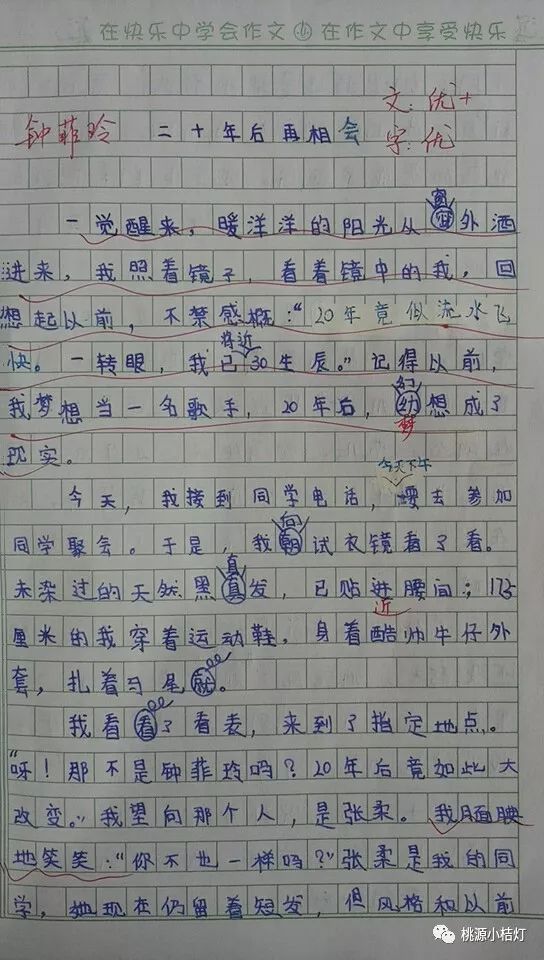 在快乐中学会作文 在作文中享受快乐
文:优+
钟菲玲 二十年后再相会 字:优
一觉醒来,暖洋洋的阳光从窗外洒
进来,我照着镜子,看着镜中的我,回
想起以前,不禁感概:“20年竟似流水飞
将近
快。一转眼,我已30生辰。”记得以前,
幻
我梦想当一名歌手,20年后,幼想成了
梦
现实。
今天下午
今天,我接到同学电话,要去参加
向
同学聚会。于是,我朝试衣镜看了看。
真
未染过的天然黑直发,已贴进腰间;173
近
厘米的我穿着运动鞋,身着酷帅牛仔外
套,扎着马尾就。
我看看了看表,来到了指定地点。
“呀!那不是钟菲玲吗?20年后竟如此大
改变。”我望向那个人,是张柔。我腼腆
地笑笑:“你不也一样吗?”张柔是我的同
学,她现在仍留着短发,但风格和以前
桃源小桔灯